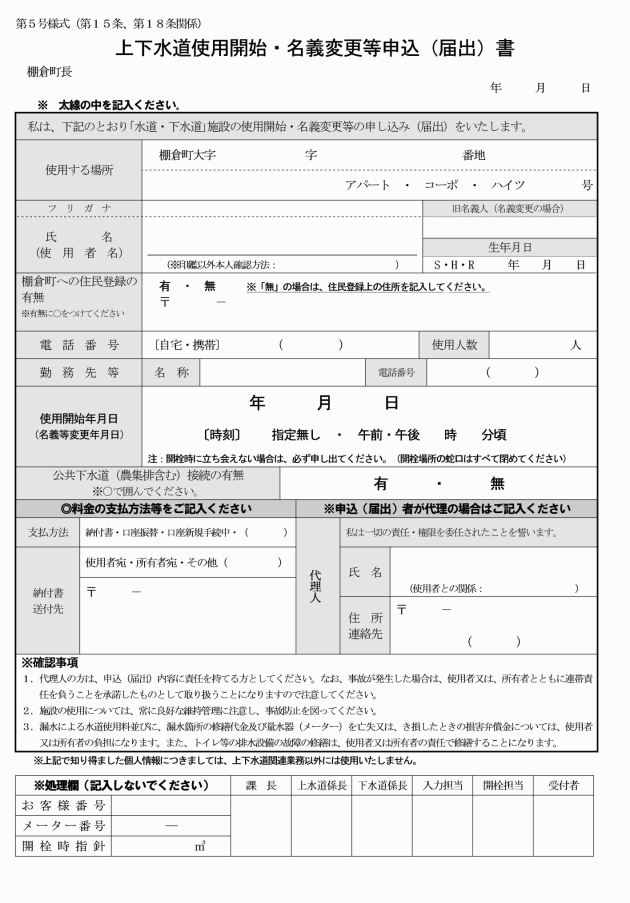 第５号様式（第１５条、第１８条関係）
上下水道使用開始・名義変更等申込（届出）書
棚倉町長
年　月　日
※　太線の中を記入ください。
私は、下記のとおり「水道・下水道」施設の使用開始・名義変更等の申し込み（届出）をいたします。
使用する場所
棚倉町大字　字　番地
アパート　・　コーポ　・　ハイツ　号
フ　リ　ガ　ナ
旧名義人（名義変更の場合）
氏　名
（使　用　者　名）
（※印鑑以外本人確認方法：　）
生年月日
S・H・R　年　月　日
棚倉町への住民登録の
有無
※有無に○をつけてください
有　・　無　※「無」の場合は、住民登録上の住所を記入してください。
〒　－
電　話　番　号
〔自宅・携帯〕　（　）
使用人数
人
勤　務　先　等
名　称
電話番号
（　）
使用開始年月日
（名義等変更年月日）
年　月　日
〔時刻〕　指定無し　・　午前・午後　時　分頃
注：開栓時に立ち会えない場合は、必ず申し出てください。（開栓場所の蛇口はすべて閉めてください）
公共下水道（農集排含む）接続の有無
※○で囲んでください。
有　・　無
◎料金の支払方法等をご記入ください
※申込（届出）者が代理の場合はご記入ください
支払方法
納付書・口座振替・口座新規手続中・（　）
私は一切の責任・権限を委任されたことを誓います。
納付書
送付先
使用者宛・所有者宛・その他（　）
〒　－
代理人
氏　名
（使用者との関係：　）
住　所
連絡先
〒　－
（　）
※確認事項
１．代理人の方は、申込（届出）内容に責任を持てる方としてください。なお、事故が発生した場合は、使用者又は、所有者とともに連帯責
任を負うことを承諾したものとして取り扱うことになりますので注意してください。
２．施設の使用については、常に良好な維持管理に注意し、事故防止を図ってください。
３．漏水による水道使用料並びに、漏水箇所の修繕代金及び量水器（メーター）を亡失又は、き損したときの損害弁償金については、使用者
又は所有者の負担になります。また、トイレ等の排水設備の故障の修繕は、使用者又は所有者の責任で修繕することになります。
※上記で知り得ました個人情報につきましては、上下水道関連業務以外には使用いたしません。
※処理欄（記入しないでください）
課　長
上水道係長
下水道係長
入力担当
開栓担当
受付者
お　客　様　番　号
メーター番号
―
開　栓　時　指　針
㎥